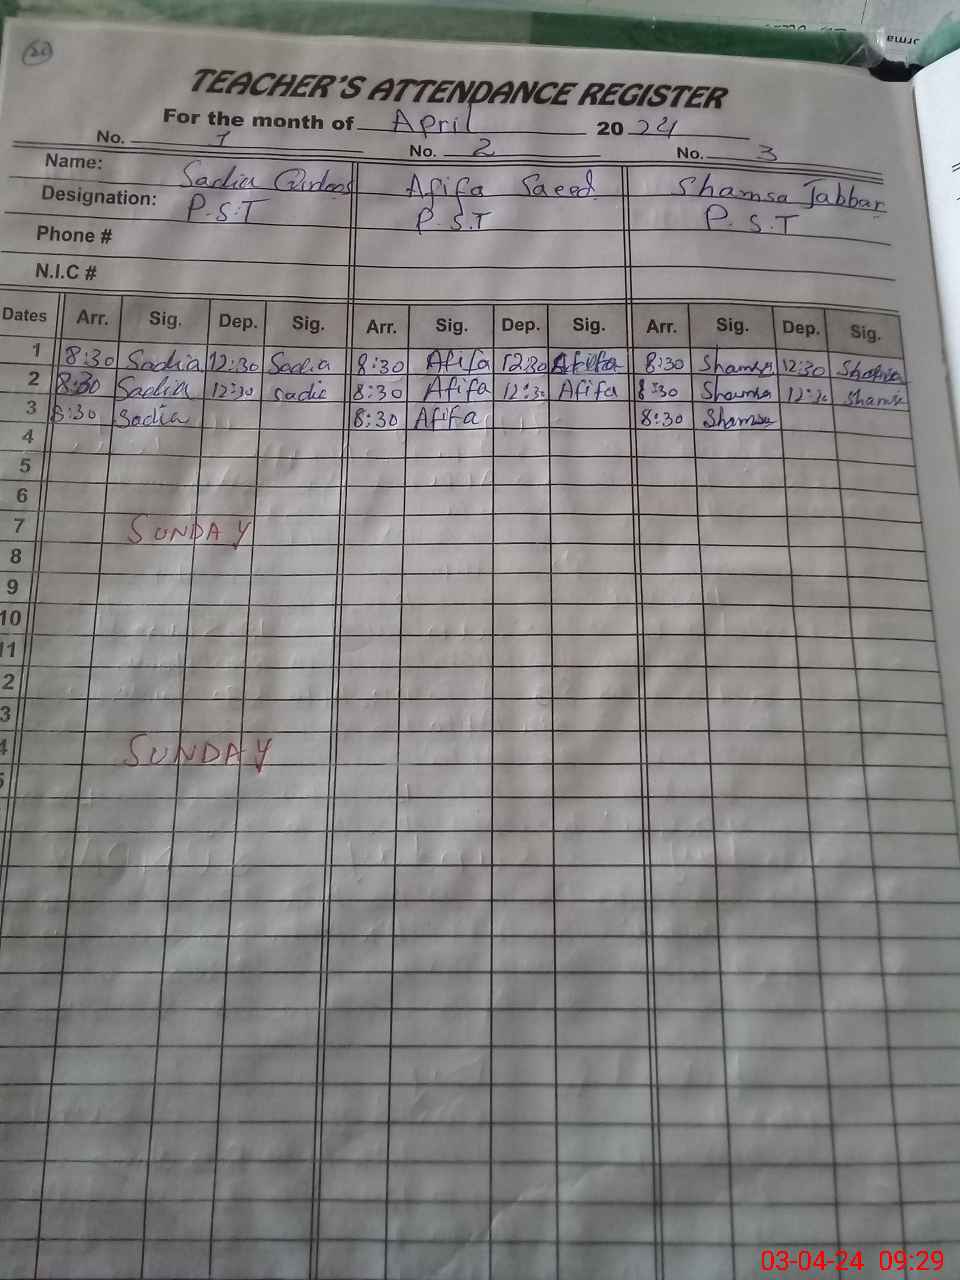 20
TEACHER'S ATTENDANCE REGISTER
For the month of April 2024
No. 1 No. 2 No. 3
Name: Sadia Afifa Saeed Shamsa Jabbar
Designation: P.S.T P.S.T P.S.T
Phone #
N.I.C #
Dates Arr. Sig. Dep. Sig. Arr. Sig. Dep. Sig. Arr. Sig. Dep. Sig.
1 8:30 Sadia 12:30 Sadia 8:30 Afifa 12:30 Afifa 8:30 Shamsa 12:30 Shamsa
2 8:30 Sadia 12:30 Sadia 8:30 Afifa 12:30 Afifa 8:30 Shamsa 12:30 Shamsa
3 8:30 Sadia 8:30 Afifa 8:30 Shamsa
4
5
6
7 SUNDAY
8
9
10
11
2
3
4 SUNDAY
5
03-04-24 09:29